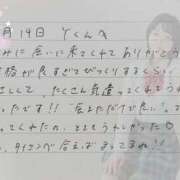 月19日 Yくんへ
みに会いに来てくれてありがとう
格が良すぎてびっくりするくらい
さしくて、たくさん気遣ってくれて
ったです!! 会えただけで良い
ってくれたの、とてもうれしかった♡
、タイミング合えばまってるね!!